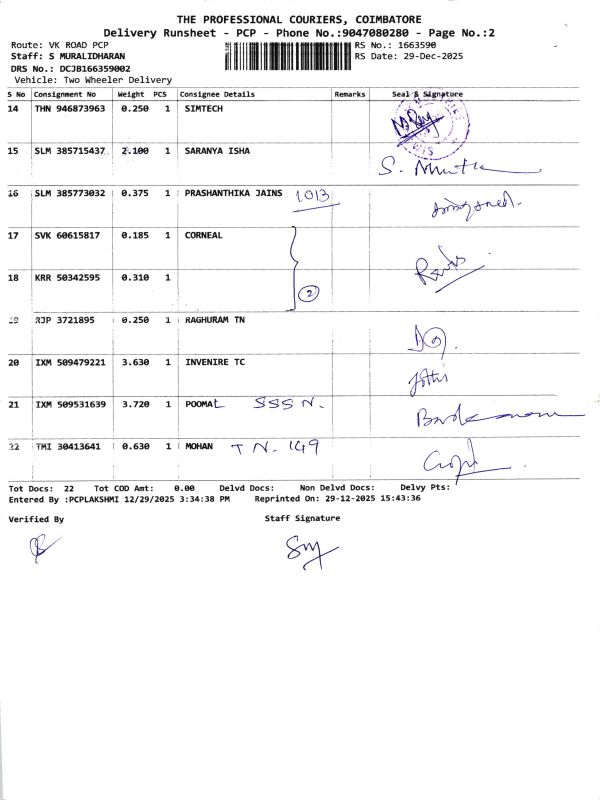 THE PROFESSIONAL COURIERS, COIMBATORE
Delivery Runsheet - PCP - Phone No.:9047080280 - Page No.:2
Route: VK ROAD PCP RS No.: 1663590
Staff: S MURALIDHARAN RS Date: 29-Dec-2025
DRS No.: DCJB166359002
Vehicle: Two Wheeler Delivery
S No Consignment No Weight PCS Consignee Details Remarks Seal & Signature
14 THN 946873963 0.250 1 SIMTECH
15 SLM 385715437 2.100 1 SARANYA ISHA
16 SLM 385773032 0.375 1 PRASHANTHIKA JAINS 1013
17 SVK 60615817 0.185 1 CORNEAL
18 KRR 50342595 0.310 1 2
19 RJP 3721895 0.250 1 RAGHURAM TN
20 IXM 509479221 3.630 1 INVENIRE TC
21 IXM 509531639 3.720 1 POOMAL SSSN.
22 TMI 30413641 0.630 1 MOHAN TN. 149
Tot Docs: 22 Tot COD Amt: 0.00 Delvd Docs: Non Delvd Docs: Delvy Pts:
Entered By :PCPLAKSHMI 12/29/2025 3:34:38 PM Reprinted On: 29-12-2025 15:43:36
Verified By Staff Signature